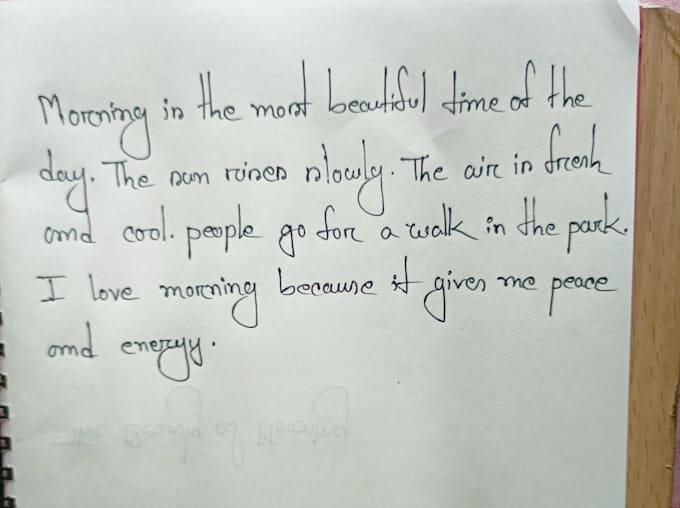 Morning is the most beautiful time of the
day. The sun rises slowly. The air is fresh
and cool. people go for a walk in the park.
I love morning because it gives me peace
and energy.
The Beauty of Morning